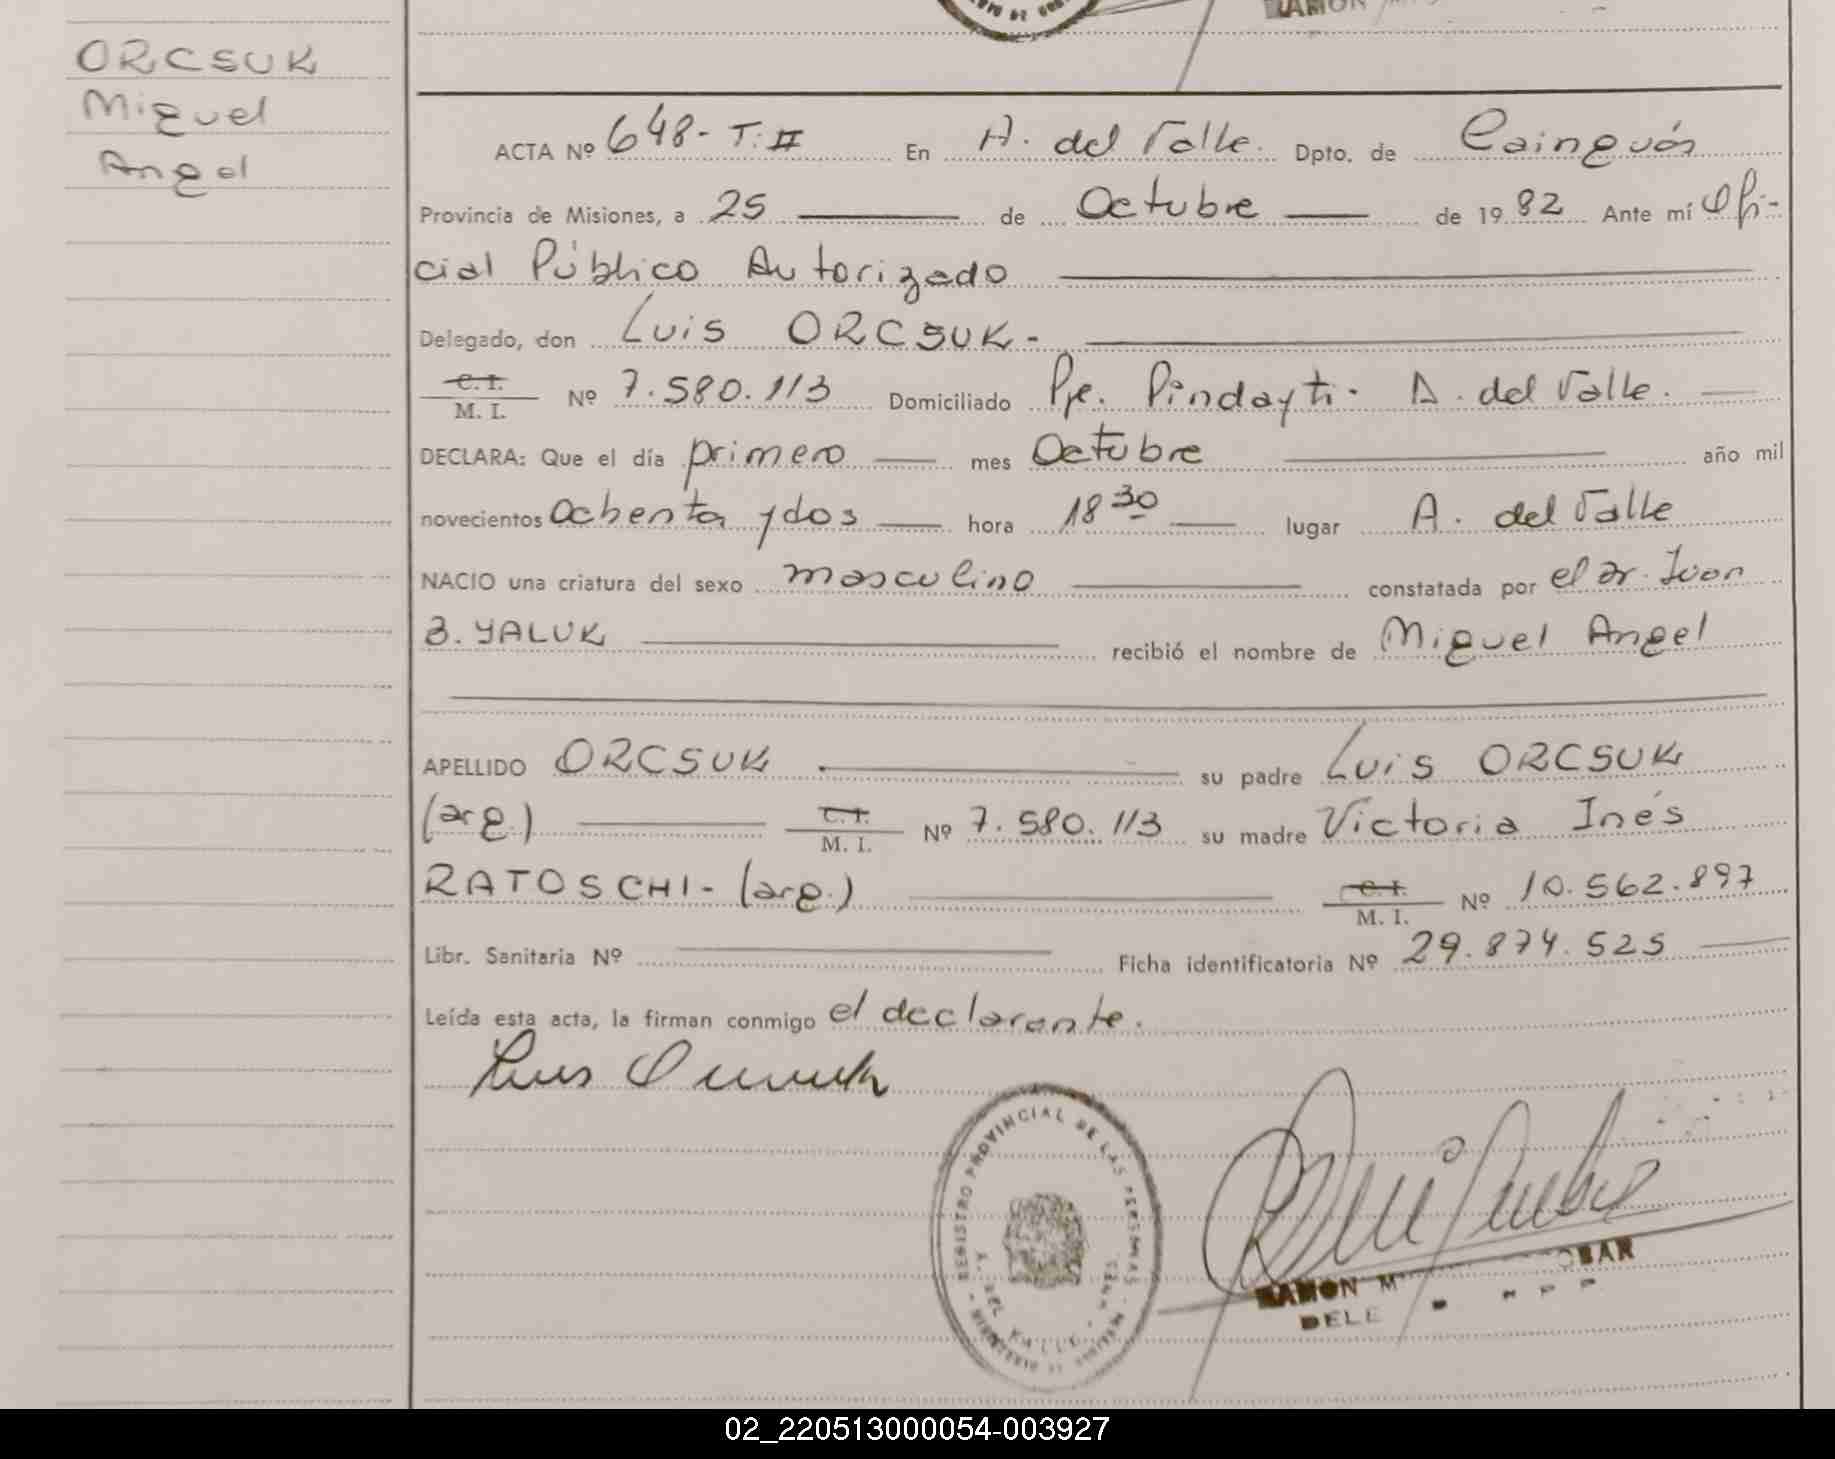 RAMON
ORCSUK
Miguel
Angel
ACTA Nº 648- T: II En A. del Valle. Dpto. de Cainguás
Provincia de Misiones, a 25 de Octubre de 1982 Ante mí Ofi-
cial Público Autorizado
Delegado, don Luis ORCSUK-
C. I.
M. I. Nº 7.580.113 Domiciliado Pje. Pindayti- A. del Valle.
DECLARA: Que el día primero mes Octubre año mil
novecientos ochenta y dos hora 18 30 lugar A. del Valle
NACIO una criatura del sexo masculino constatada por el Dr. Juan
B. YALUK recibió el nombre de Miguel Angel
APELLIDO ORCSUK su padre Luis ORCSUK
(arg.) C. I.
M. I. Nº 7.580.113 su madre Victoria Inés
RATOSCHI- (arg.) C. I.
M. I. Nº 10.562.897
Libr. Sanitaria Nº Ficha identificatoria Nº 29.874.525
Leída esta acta, la firman conmigo el declarante.
Luis
REGISTRO PROVINCIAL DE LAS PERSONAS
A. DEL VALLE
RAMON M OBAR
DELE
02_220513000054-003927